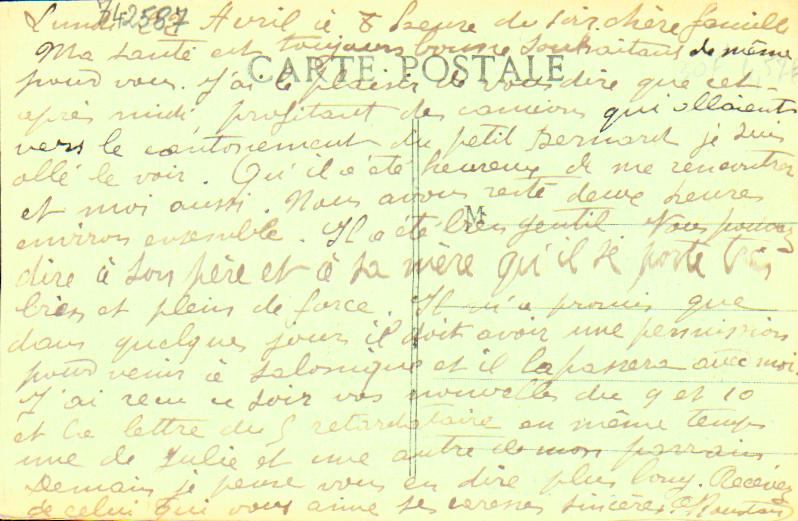 742587
Lundi 22 Avril à 8 heure du soir chère famille
Ma santé est toujours bonne souhaitant de même
CARTE POSTALE
pour vous. J'ai le plaisir de vous dire que cet
après midi profitant des camions qui allaient
vers le cantonement du petit Bernard je suis
allé le voir. Qu'il a été heureux de me rencontrer
et moi aussi. Nous avons resté deux heures
M
environ ensemble. Il a été bien gentil Vous pouvez
dire à son père et à sa mère qu'il se porte très
bien et plein de force. Il m'a promis que
dans quelques jours il doit avoir une permission
pour venir à Salonique et il la passera avec moi.
J'ai reçu ce soir vos nouvelles du 9 et 10
et la lettre du 5 retardataire en même temps
une de Julie et une autre de mon parrain
Demain je pense vous en dire plus long. Recevez
de celui qui vous aime ses caresses sincères